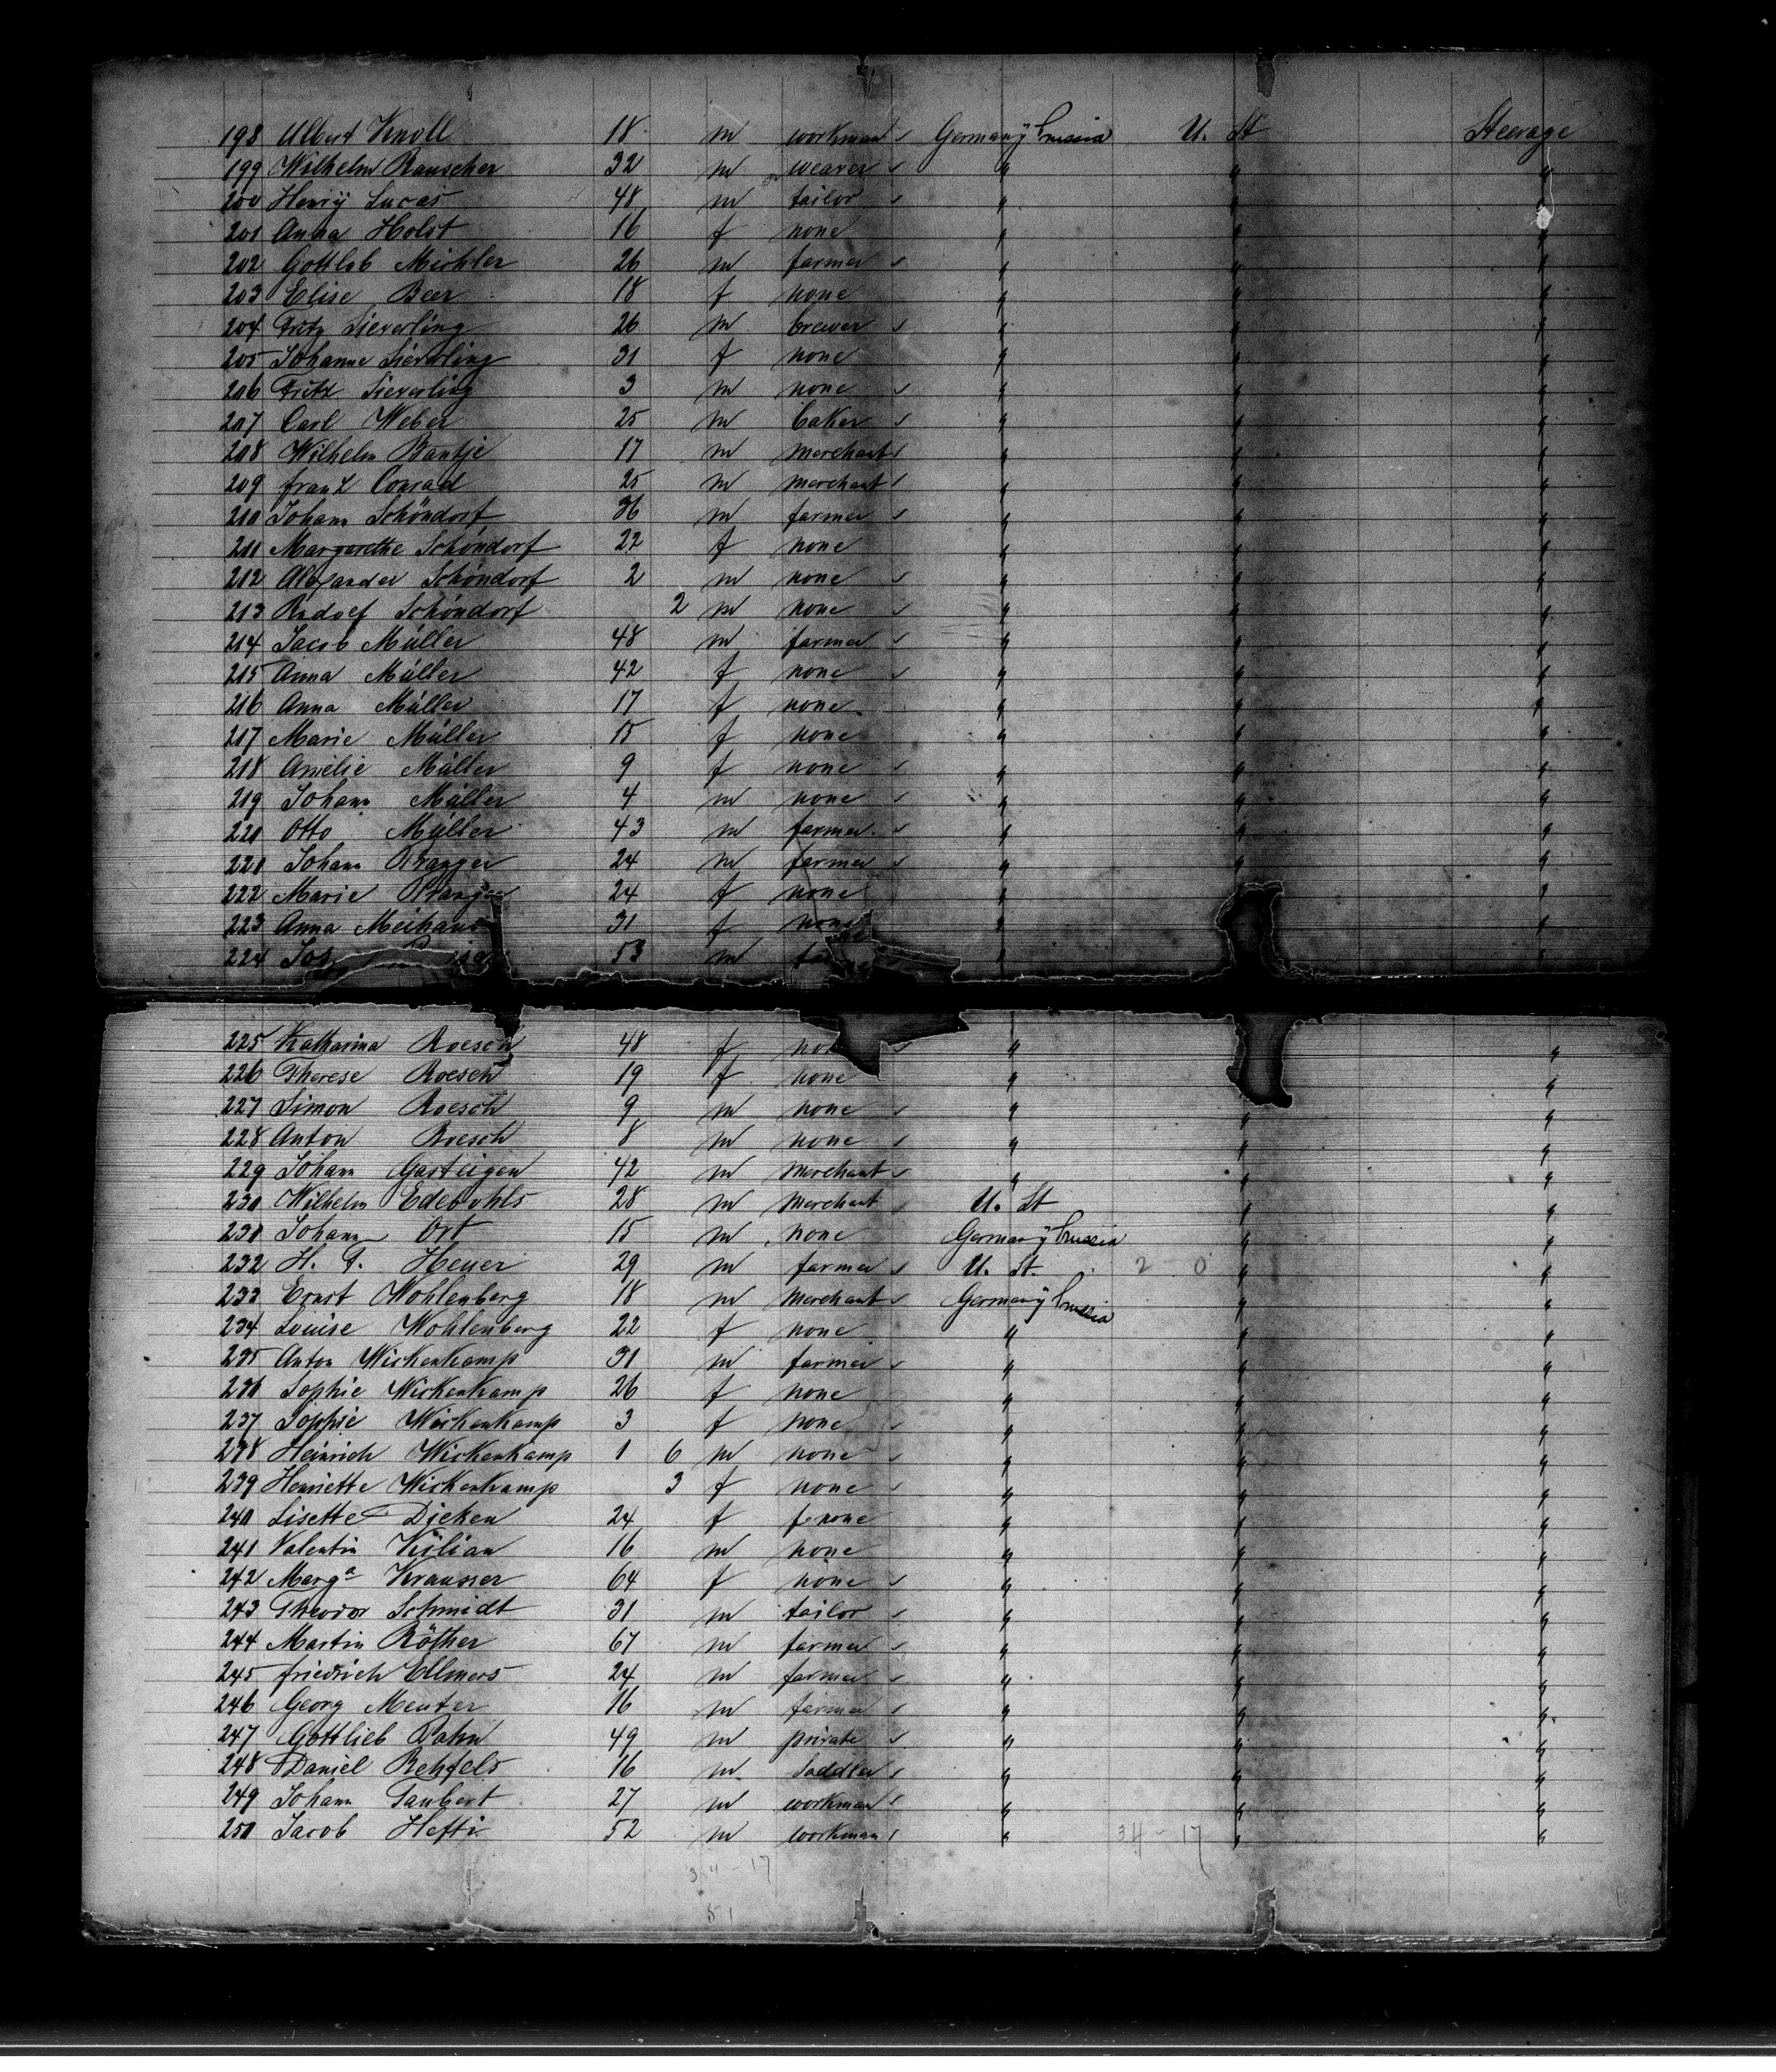 198 Albert Knoll 18 m workman Germany Prussia U. St Steerage
199 Wilhelm Rauscher 32 m weaver " " "
200 Henry Lucas 48 m tailor " " "
201 Anna Holst 16 f none " " "
202 Gottlob Michler 26 m farmer " " "
203 Elise Beer 18 f none " " "
204 Fritz Sieverling 26 m brewer " " "
205 Johanne Sieverling 31 f none " " "
206 Fritz Sieverling 3 m none " " "
207 Carl Weber 25 m baker " " "
208 Wilhelm Bantje 17 m merchant " " "
209 Franz Conrad 25 m merchant " " "
210 Johann Schöndorf 36 m farmer " " "
211 Margarethe Schöndorf 22 f none " " "
212 Alexander Schöndorf 2 m none " " "
213 Rudolf Schöndorf 2 m none " " "
214 Jacob Müller 48 m farmer " " "
215 Anna Müller 42 f none " " "
216 Anna Müller 17 f none " " "
217 Marie Müller 15 f none " " "
218 Amélie Müller 9 f none " " "
219 Johann Müller 4 m none " " "
220 Otto Müller 43 m farmer " " "
221 Johann Pranger 24 m farmer " " "
222 Marie 24 f none " " "
223 Anna 31 f none " "
224 53 m " "
225 Katharina Roesch 48 f " "
226 Therese Roesch 19 f none " "
227 Simon Roesch 9 m none " " "
228 Anton Roesch 8 m none " " "
229 Johann Gasteigen 42 m merchant " " "
230 Wilhelm Edebohls 28 m merchant U. St " "
231 Johann Ort 15 m none Germany Prussia " "
232 H. G. Heuer 29 m farmer U. St. 2 0 " "
233 Ernst Wohlenberg 18 m merchant Germany Prussia " "
234 Louise Wohlenberg 22 f none " " "
235 Anton Wickenkamp 31 m farmer " " "
236 Sophie Wickenkamp 26 f none " " "
237 Sophie Wickenkamp 3 f none " " "
238 Heinrich Wickenkamp 1 6 m none " " "
239 Henriette Wickenkamp 3 f none " " "
240 Lisette Dieken 24 f none " " "
241 Valentin Kilian 16 m none " " "
242 Marga Krausser 64 f none " " "
243 Theodor Schmidt 31 m tailor " " "
244 Martin Röther 67 m farmer " " "
245 Friedrich Ellmers 24 m farmer " " "
246 Georg Meuter 16 m farmer " " "
247 Gottlieb Pahn 49 m private " " "
248 Daniel Rehfels 16 m saddler " " "
249 Johann Taubert 27 m workman " " "
250 Jacob Hefti 52 m workman " 34-17 " "
34-17
51